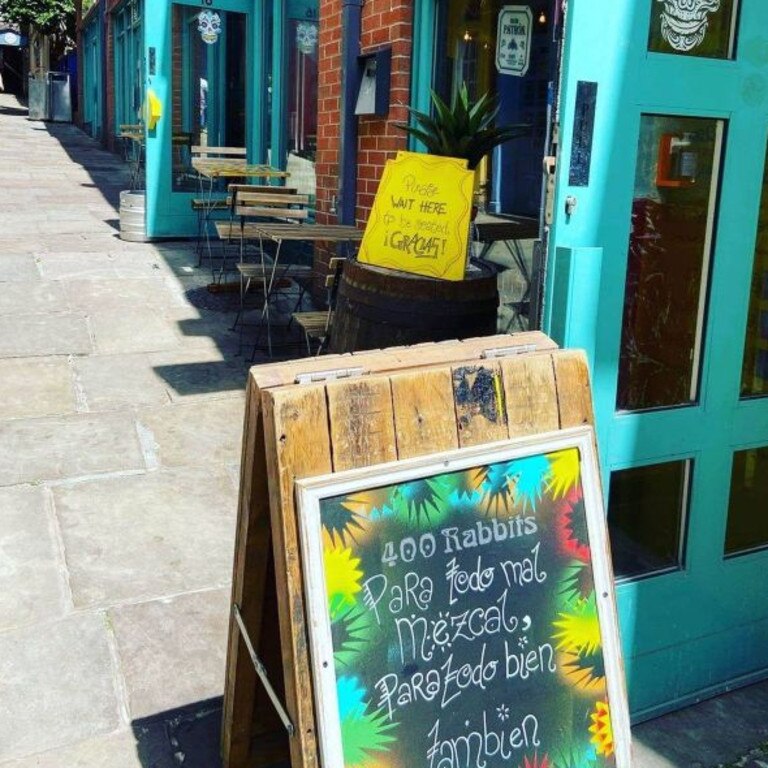 PATRÓN
Please
WAIT HERE
to be seated.
¡GRACIAS!
400 Rabbits
Para todo mal
mezcal,
Para todo bien
tambien